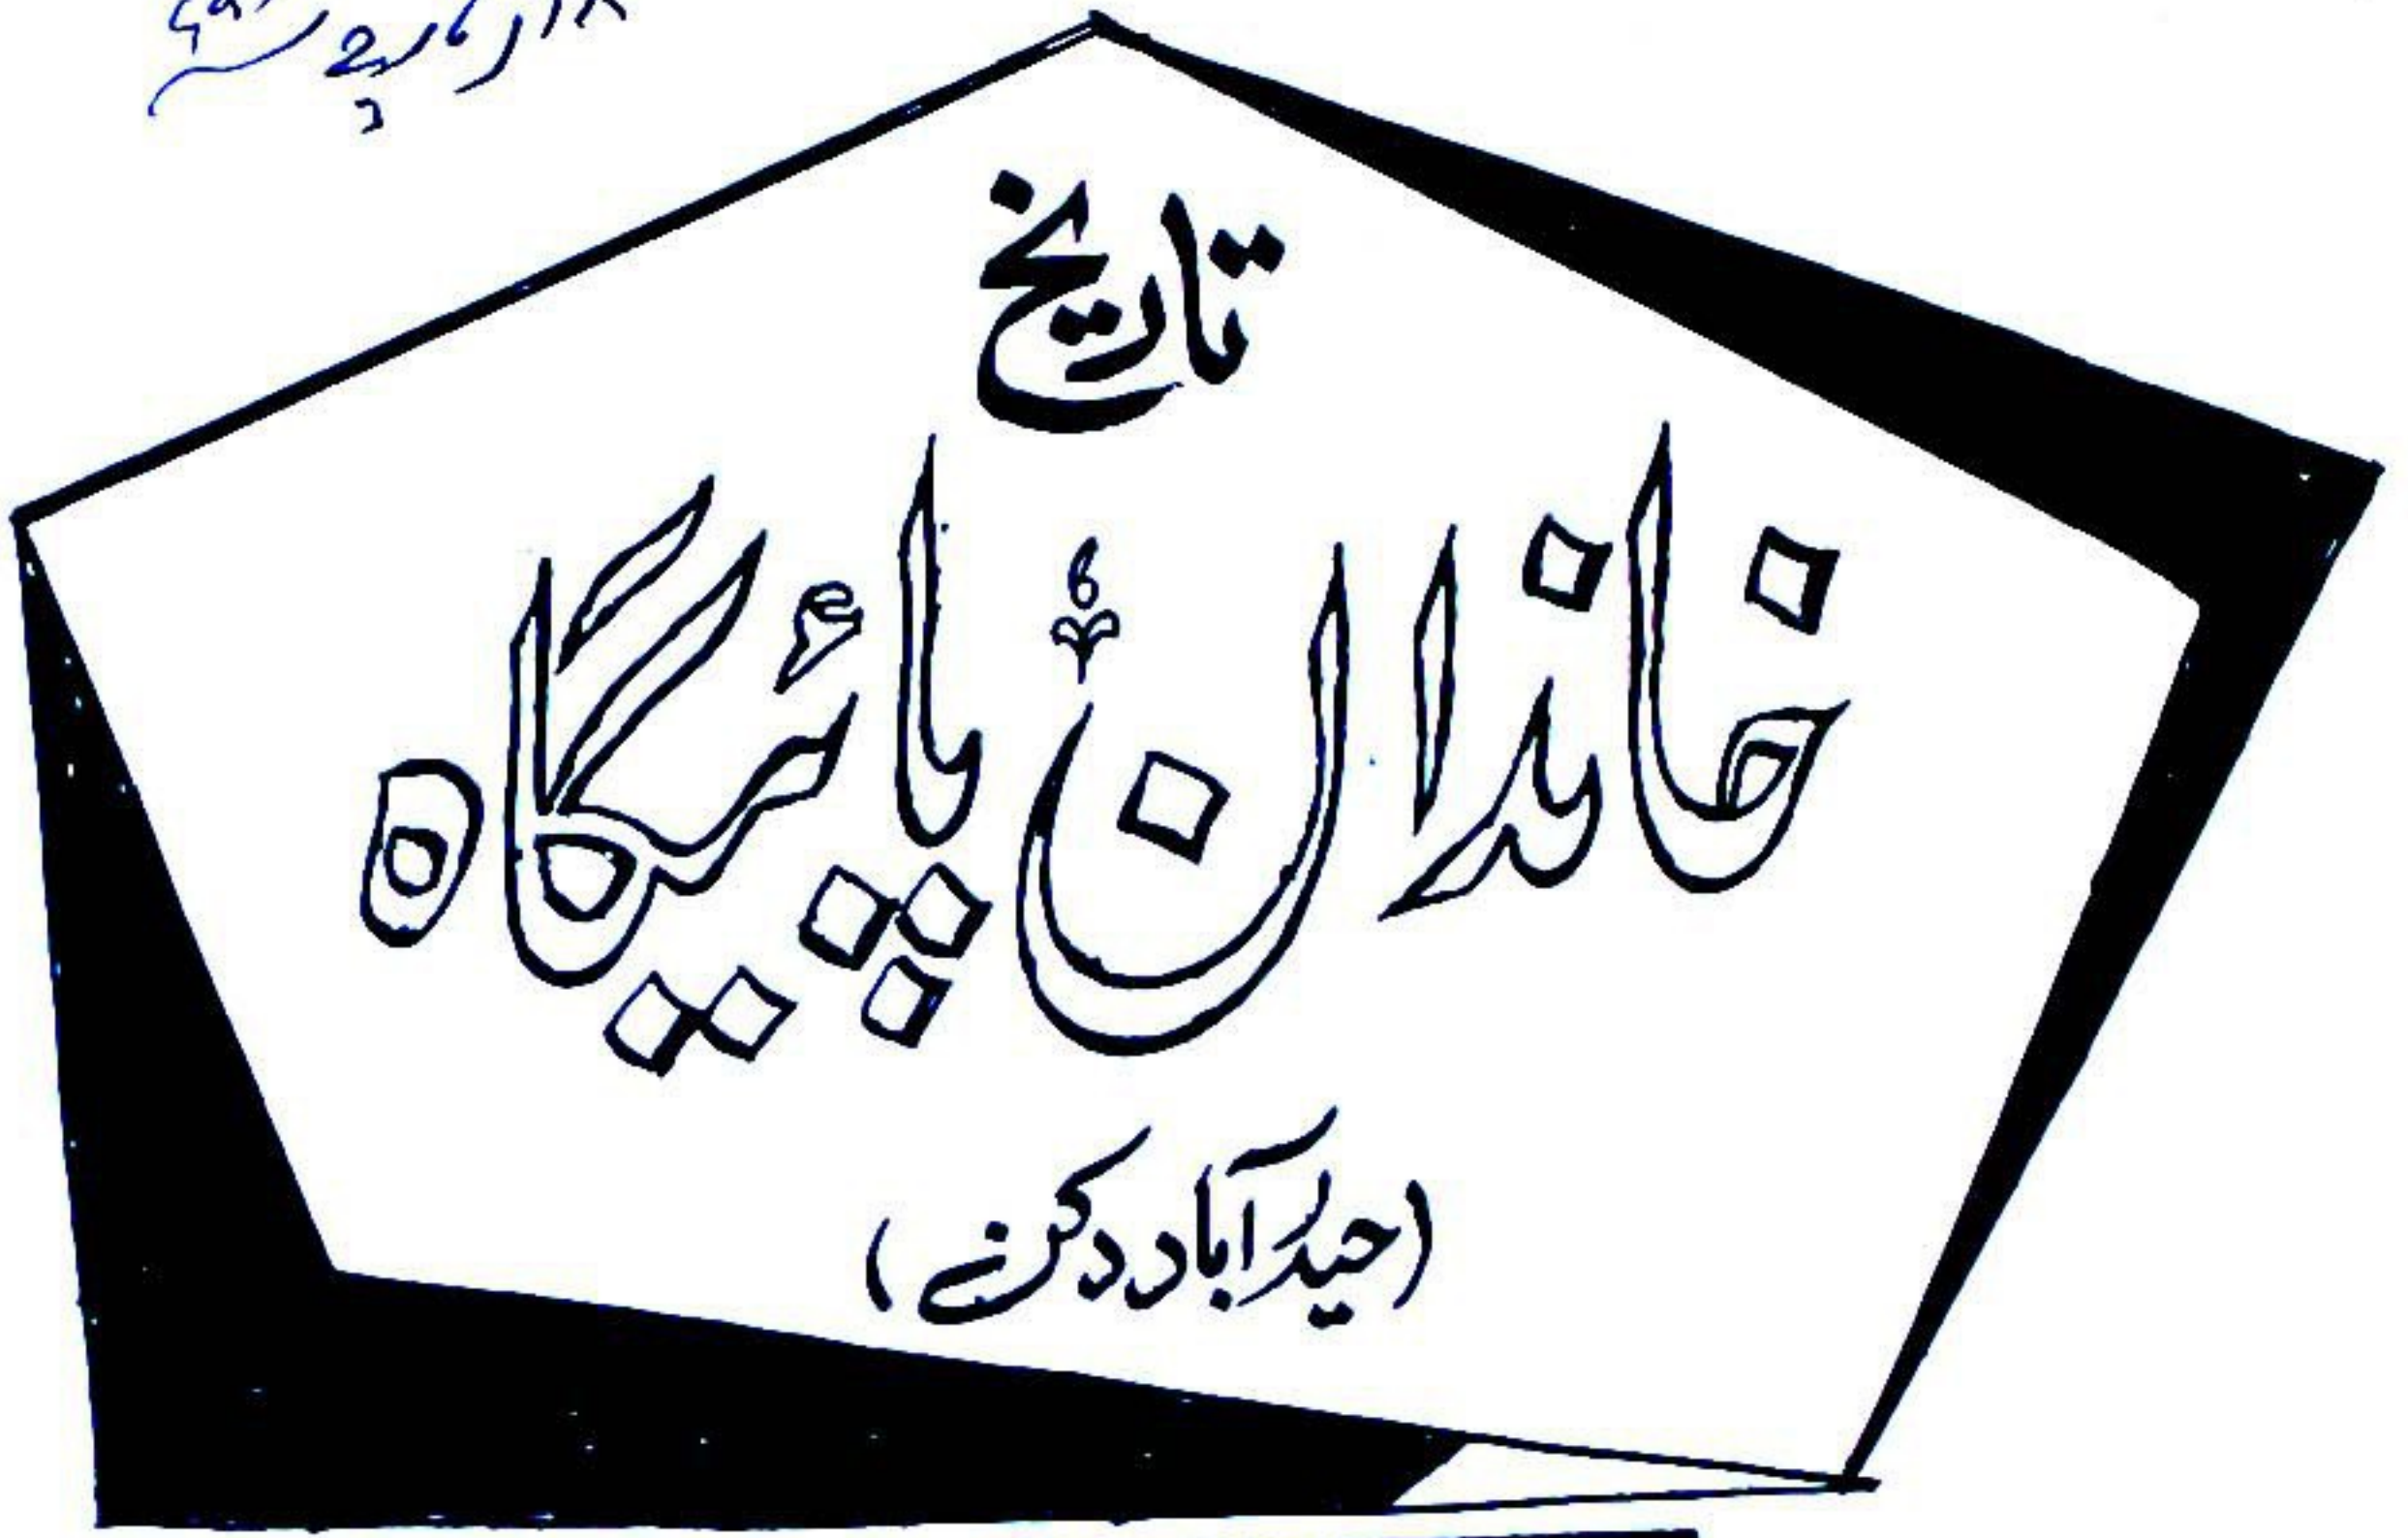 تاریخ
خاندان پائیگاہ
(حیدرآباد دکن)